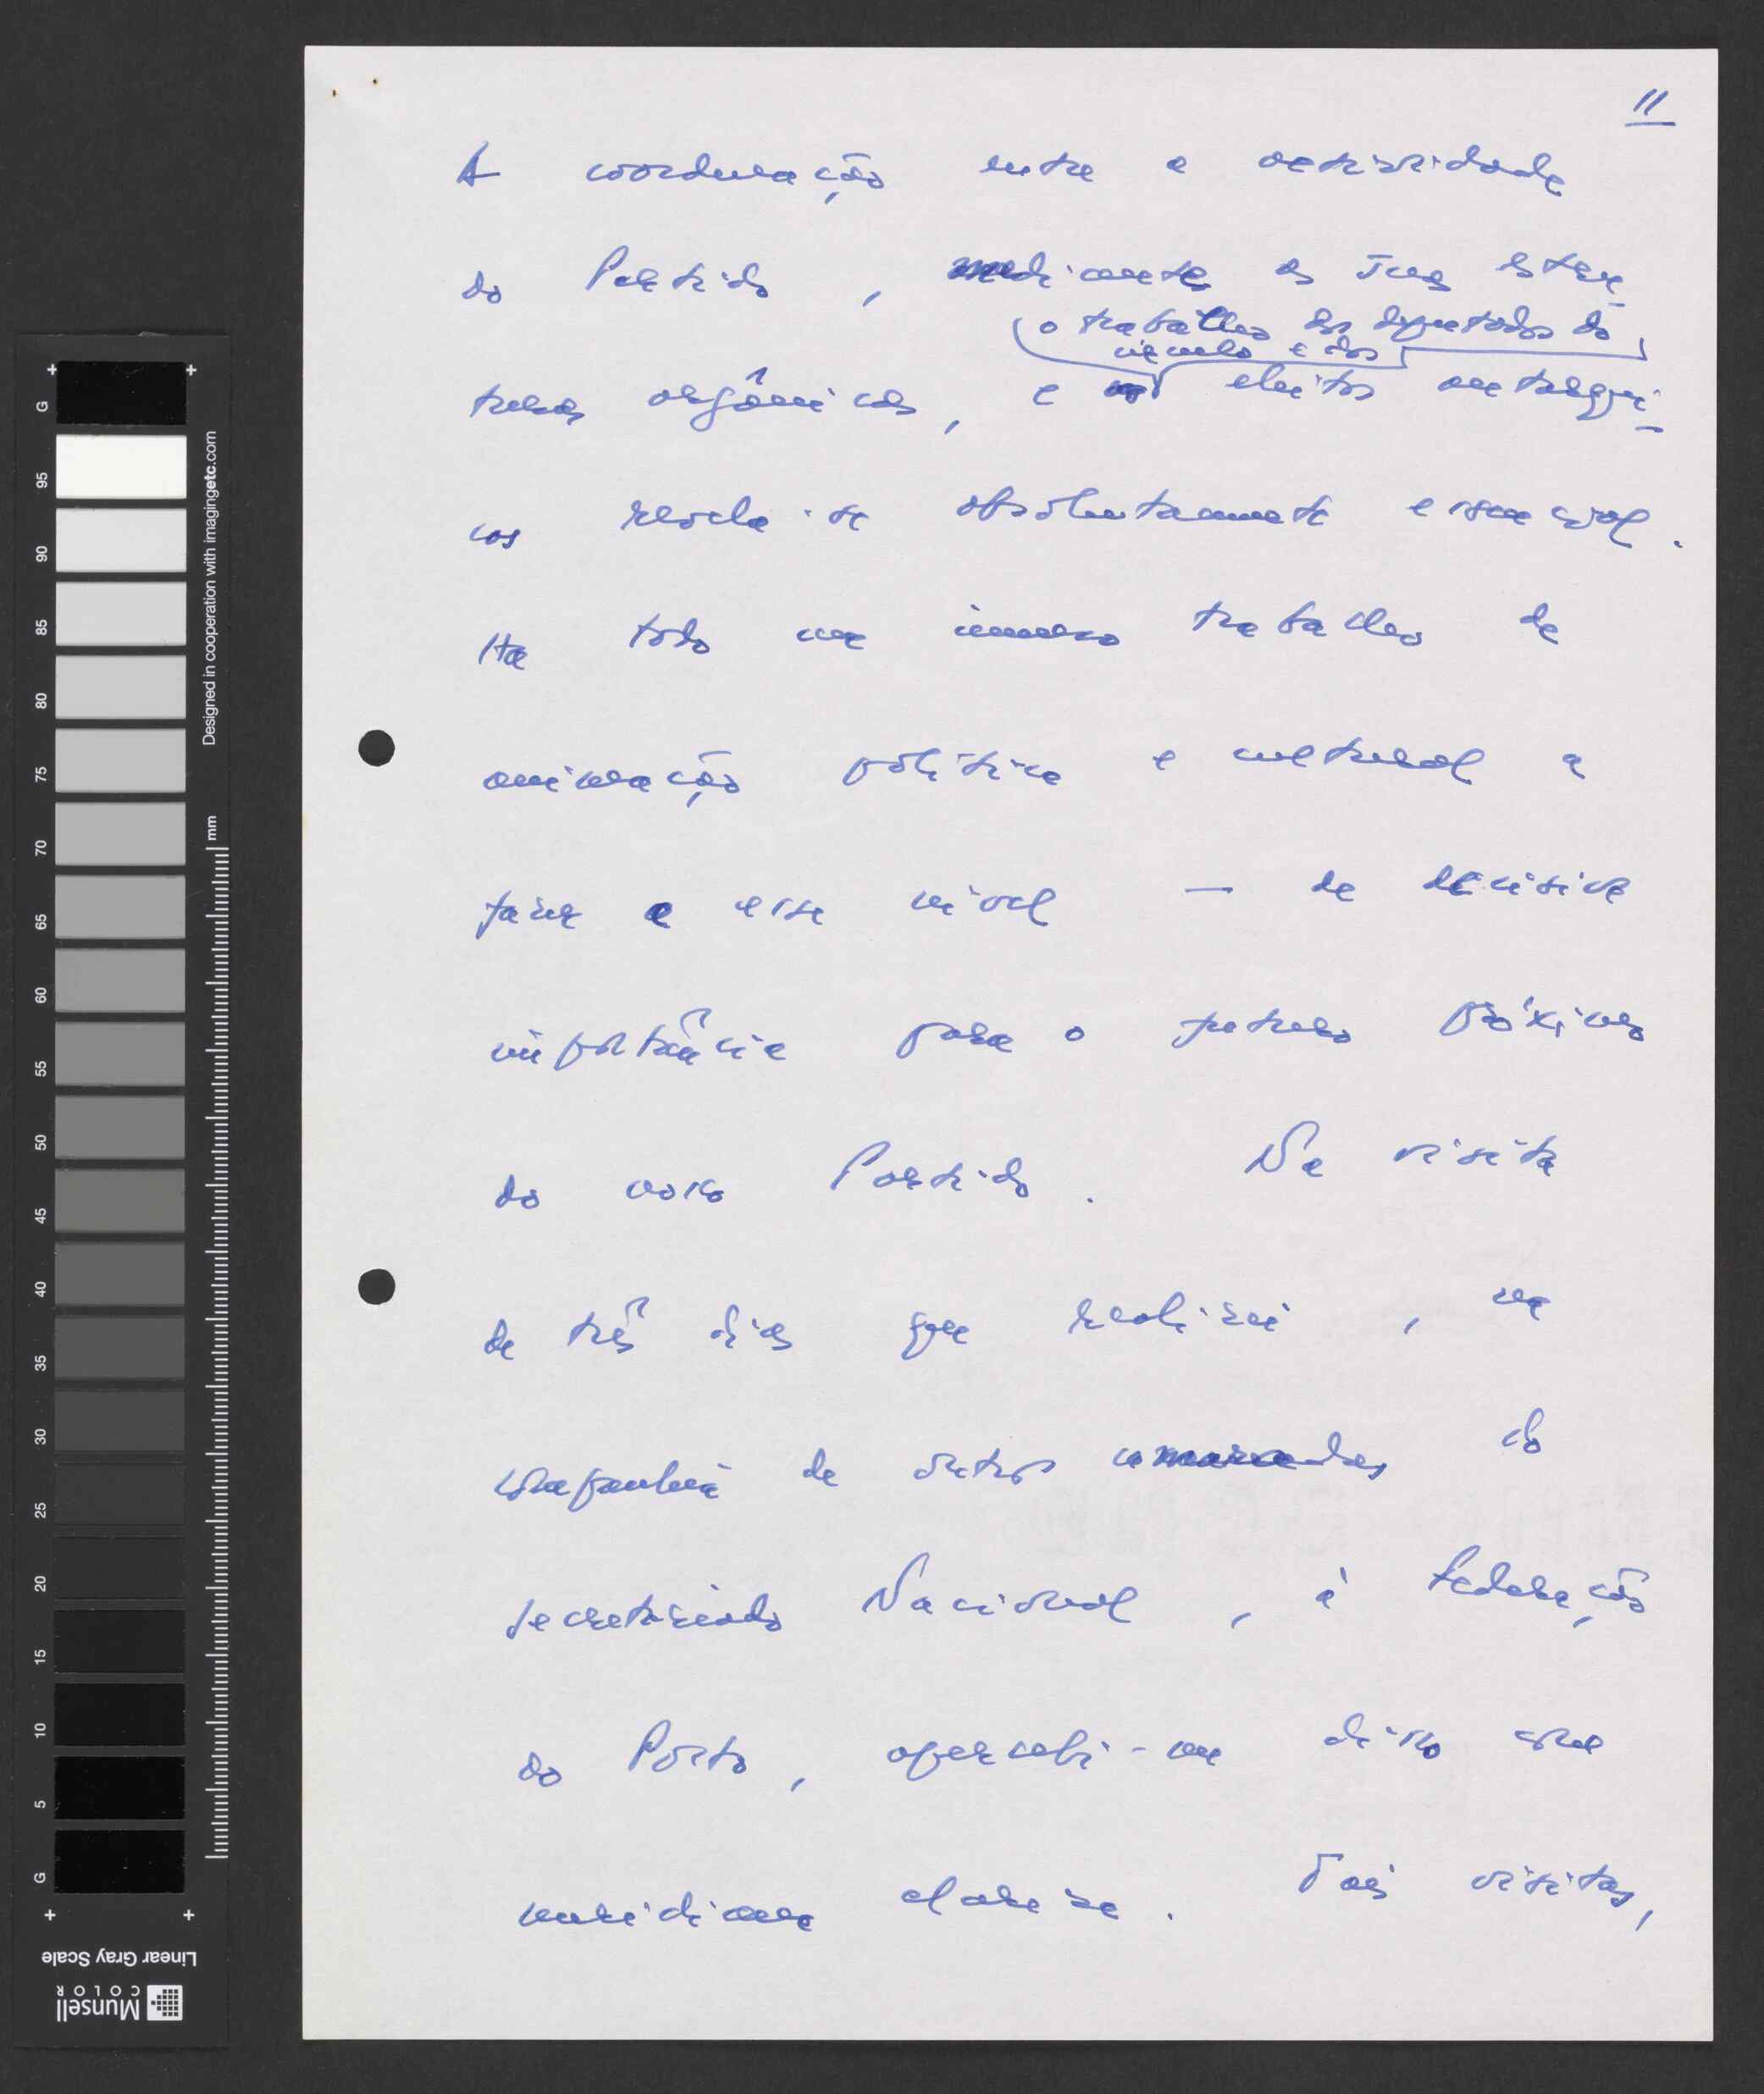 11
A coordenação entre a actividade
do Partido, mediante as suas estru-
o trabalho dos deputados do
círculo e dos
turas orgânicas, e eleitos autárqui-
cos revela-se absolutamente essencial.
Há todo um imenso trabalho de
animação política e cultural a
fazer a esse nível — de decisiva
importância para o futuro próximo
do nosso Partido. Na visita
de três dias que realizei, na
companhia de outros camaradas do
Secretariado Nacional, à Federação
do Porto, apercebi-me disso com
meridiana clareza. Tais visitas,
G
95
90
85
80
75
70
65
60
55
50
45
40
35
30
25
20
15
10
5
G
Designed in cooperation with imagingetc.com
mm
Linear Gray Scale
Munsell
COLOR